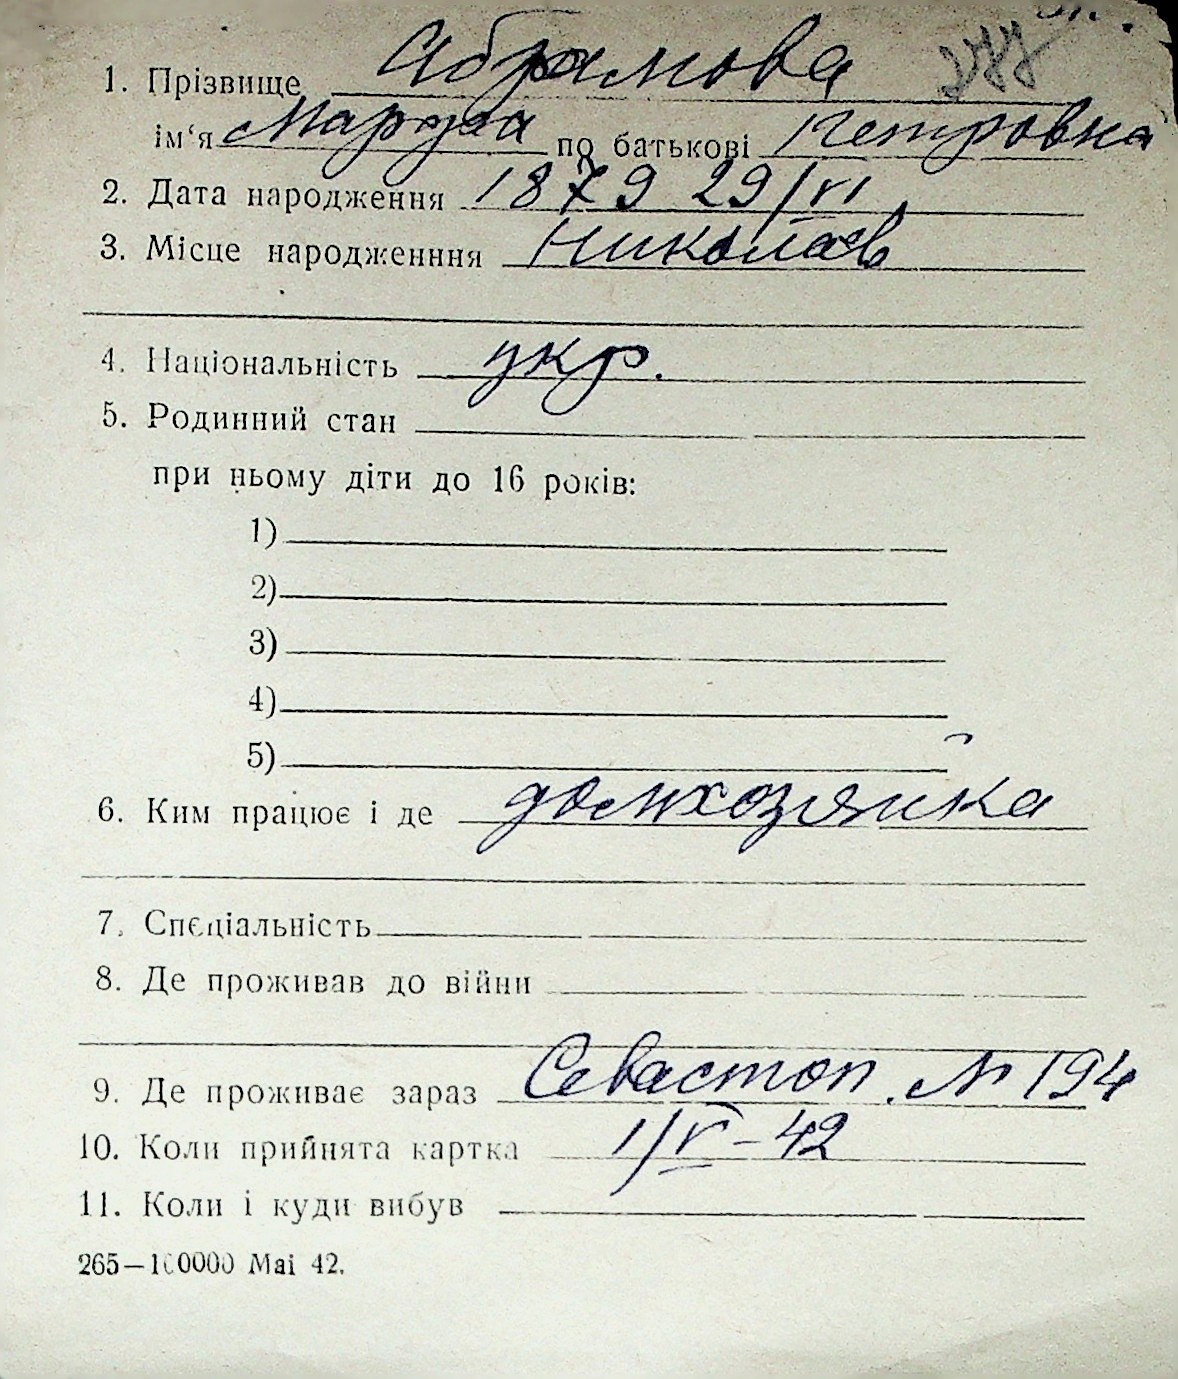 277
1. Прізвище Абрамова
ім‘я Марфа по батькові Петровна
2. Дата народження 1879 29/VI
3. Місце народженння Николаев
4. Національність укр.
5. Родинний стан
при ньому діти до 16 років:
1)
2)
3)
4)
5)
6. Ким працює і де домхозяйка
7. Спеціальність
8. Де проживав до війни
9. Де проживає зараз Севастоп. № 194
10. Коли прийнята картка 1/V-42
11. Коли і куди вибув
265—100000 Mai 42.